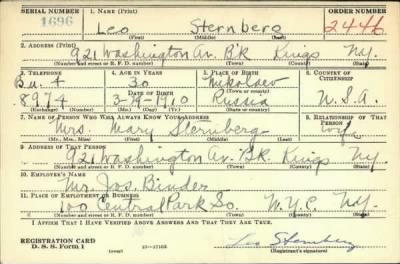 SERIAL NUMBER 1. NAME (Print) ORDER NUMBER
1696 Leo Sternberg 2446
(First) (Middle) (Last)
2. ADDRESS (Print)
921 Washington Av. Bk Kings N.Y.
(Number and street or R. F. D. number) (Town) (County) (State)
3. TELEPHONE 4. AGE IN YEARS 5. PLACE OF BIRTH 6. COUNTRY OF CITIZENSHIP
Bu. 4 30 Nikolaev
(Town or county)
8974 DATE OF BIRTH 3-29-1910 Russia U.S.A.
(Exchange) (Number) (Mo.) (Day) (Yr.) (State or country)
7. NAME OF PERSON WHO WILL ALWAYS KNOW YOUR ADDRESS 8. RELATIONSHIP OF THAT PERSON
Mrs. Mary Sternberg wife
(Mr., Mrs., Miss) (First) (Middle) (Last)
9. ADDRESS OF THAT PERSON
921 Washington Av. Bk. Kings N.Y.
(Number and street or R. F. D. number) (Town) (County) (State)
10. EMPLOYER'S NAME
Mr. Jos. Binder
11. PLACE OF EMPLOYMENT OR BUSINESS
100 Central Park So. N.Y.C. N.Y.
(Number and street or R. F. D. number) (Town) (County) (State)
I AFFIRM THAT I HAVE VERIFIED ABOVE ANSWERS AND THAT THEY ARE TRUE.
REGISTRATION CARD
D. S. S. Form 1 (over) Leo Sternberg
(Registrant's signature)